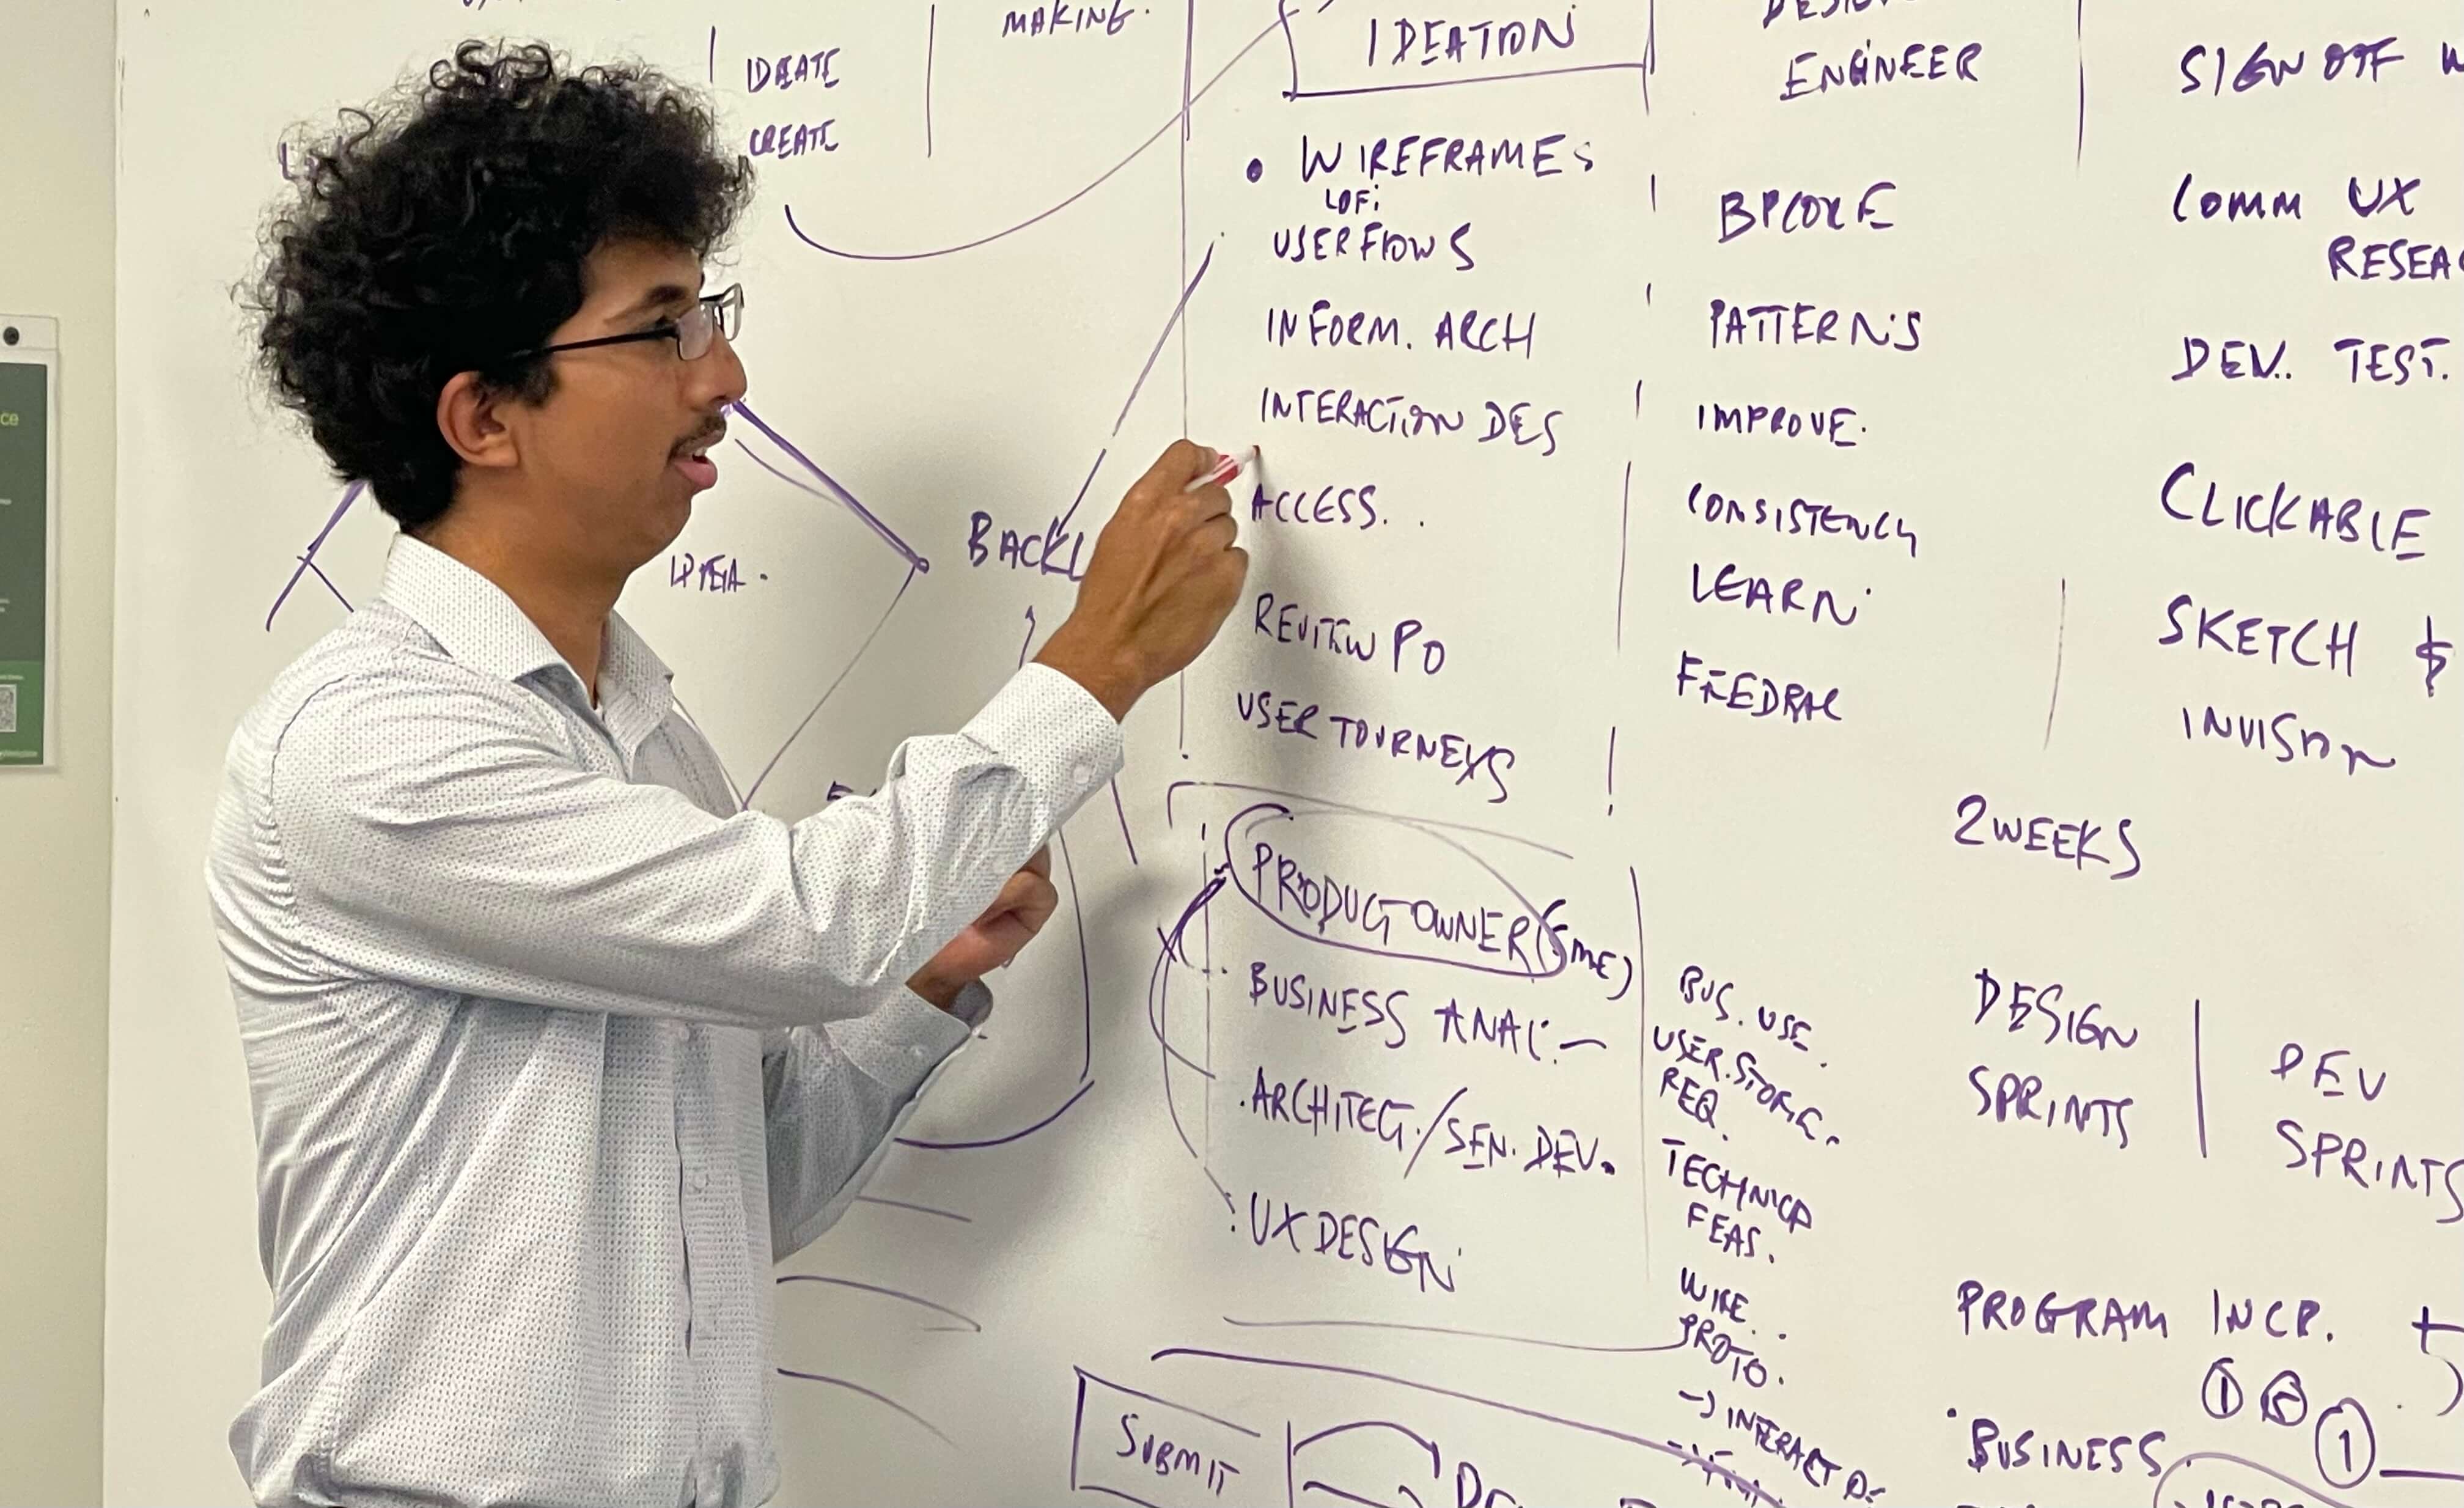 MAKING.
IDEATE
CREATE
IDEA.
BACKL
IDEATION
• WIREFRAMES
LOFI
USER FLOWS
INFORM. ARCH
INTERACTION DES
ACCESS. .
REVIEW PO
USER JOURNEYS
PRODUCT OWNER (SME)
BUSINESS ANAL. —
ARCHITECT. / SEN. DEV.
UX DESIGN
SUBMIT
ENGINEER
BPCORE
PATTERNS
IMPROVE.
CONSISTENCY
LEARN
FEEDBAC
BUS. USE.
USER. STORIE.
REQ.
TECHNICA
FEAS.
WIRE..
PROTO.
→ INTERACT DE
SIGN OFF W
COMM UX
RESEA
DEV.. TEST.
CLICKABLE
SKETCH $
INVISION
2 WEEKS
DESIGN
SPRINTS
DEV
SPRINTS
PROGRAM INCR. +
1
1
BUSINESS.